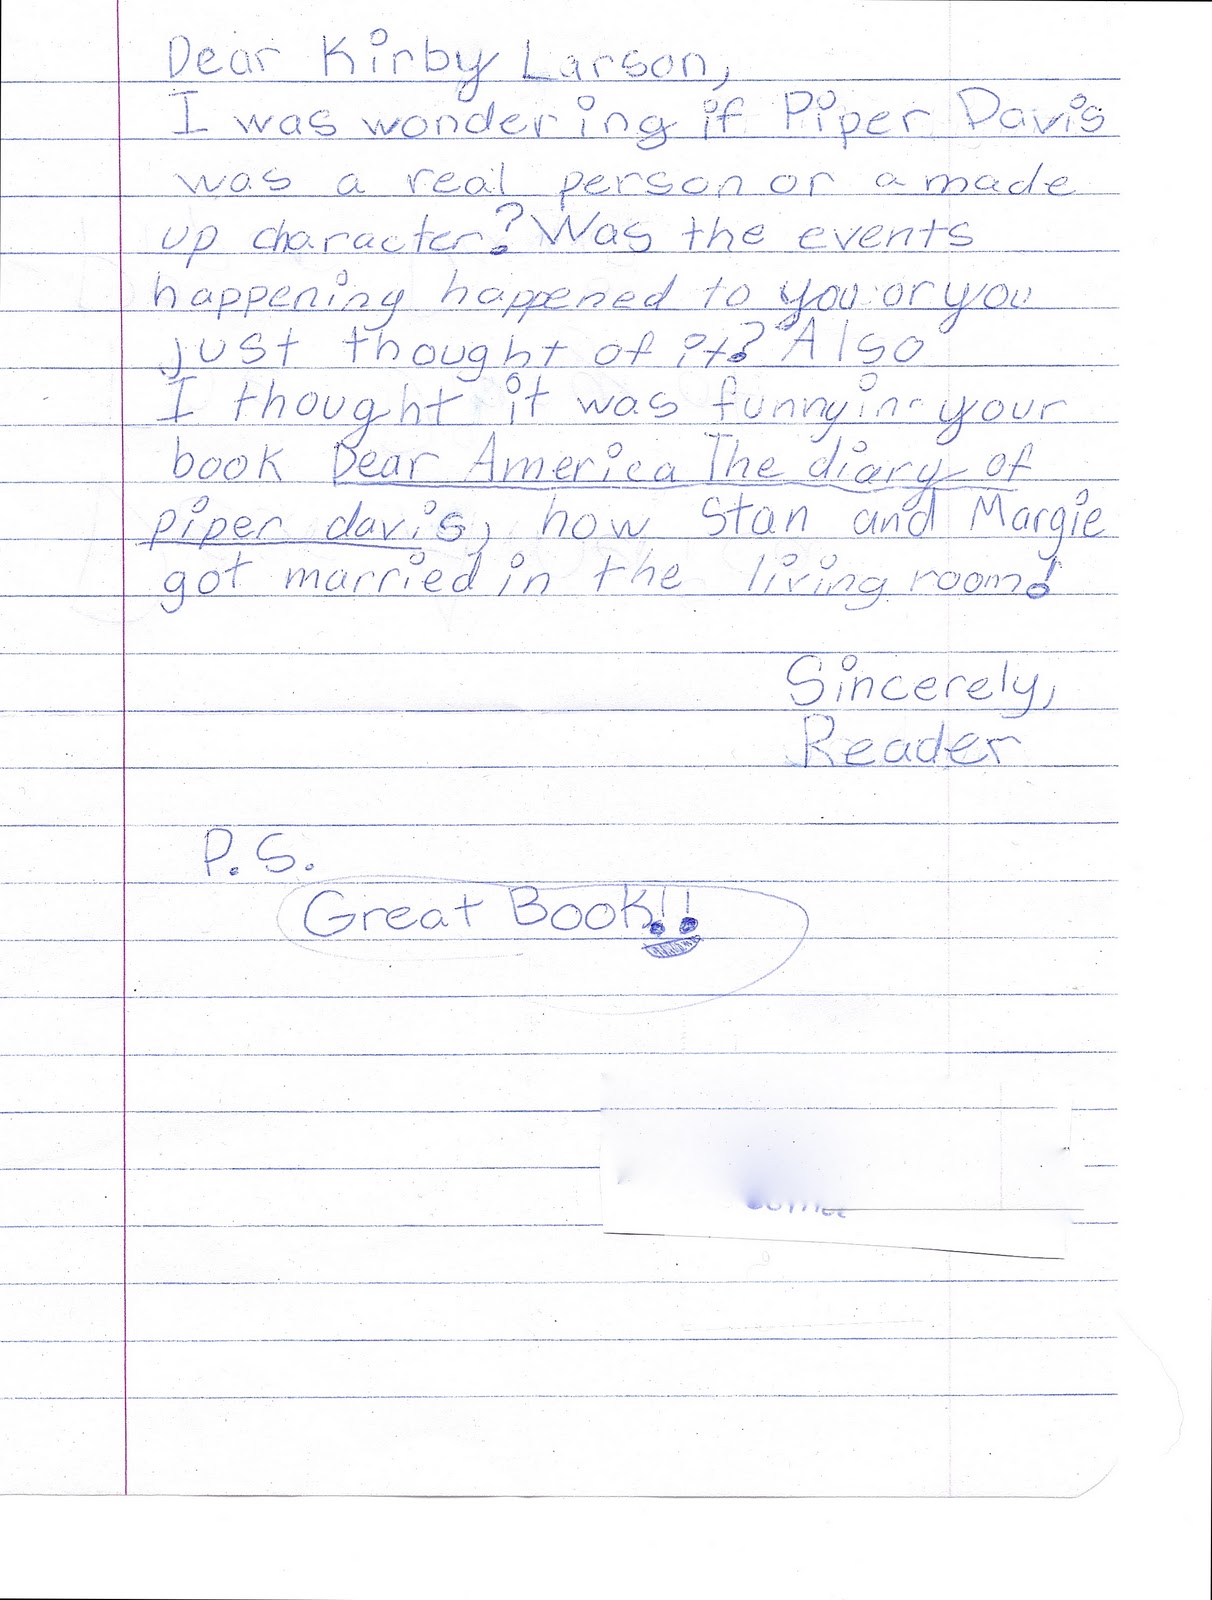 Dear Kirby Larson,
I was wondering if Piper Davis
was a real person or a made
up character? Was the events
happening happened to you or you
just thought of it? Also
I thought it was funny in your
book Dear America The diary of
piper davis, how Stan and Margie
got married in the living room!
Sincerely,
Reader
P.S.
Great Book!!